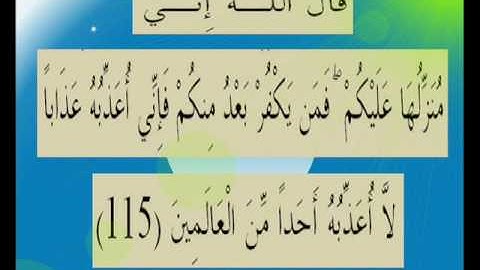 قَالَ اللَّهُ إِنِّي
مُنَزِّلُهَا عَلَيْكُمْ ۖ فَمَن يَكْفُرْ بَعْدُ مِنكُمْ فَإِنِّي أُعَذِّبُهُ عَذَاباً
لاَّ أُعَذِّبُهُ أَحَداً مِّنَ الْعَالَمِينَ (115)